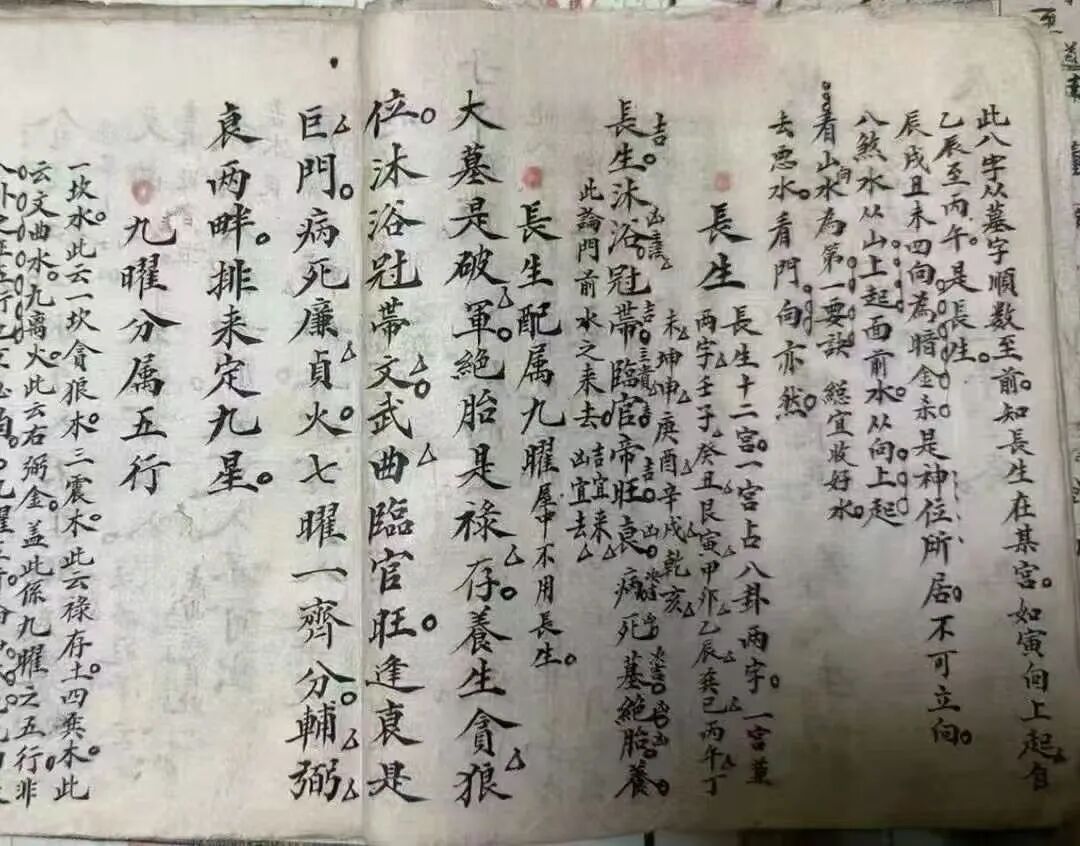 此八字从墓字順数至前。知長生在某宮。如寅向上起自
乙辰至丙午。是長生。
辰戌丑未四向為暗金永是神位所居。不可立向。
八煞水从山上起面前水。从向上起
看山向水為第一要訣 總宜收好水。
去惡水。看門向亦然。
長生 長生十二宮。一宮占八卦兩字。一宮蓋
兩字壬子癸丑艮寅甲卯乙辰巽巳丙午丁
未坤申庚酉辛戌乾亥
長生。沐浴冠帶臨官帝旺衰病死墓絕胎養。
吉 凶 吉 吉 凶 凶
此論門前水之来去。吉宜来 凶宜去
長生配属九曜 屋中不用長生。
大墓是破軍。絕胎是禄存。養生貪狼
位。沐浴冠帶文。武曲臨官旺。逢衰是
巨門。病死廉貞火。七曜一齊分。輔弼
衰兩畔。排来定九星。
九曜分属五行
一坎水。此云一坎貪狼木。三震木。此云禄存土。四巽木。此
云文曲水。九離火。此云右弼金。盖此係九曜之五行非